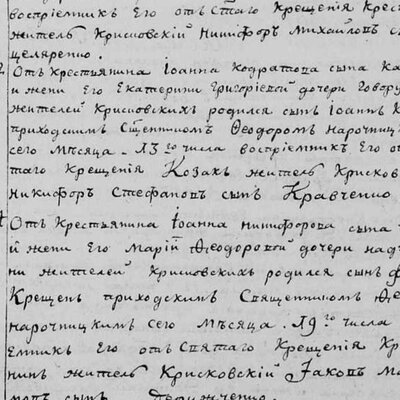 воспріемникъ Его отъ Стаго Крещенія Крес
житель Крисковскій Никифоръ Михайловъ с
целяренко.
Отъ Крестьянина Іоанна Кодратова сына Ка
и жени Его Екатерини Григоріевой дочери Говору
жителей Крисковскихъ родился сынъ Іоаннъ К
приходскимъ Сщенникомъ Ѳеодоромъ Нарочниц
сего Мѣсяца. 13го числа воспріемникъ Его о
таго Крещенія Козакъ житель Крисков
Никифоръ Стефановъ сынъ Кравченко
Отъ Крестьянина Іоанна Никифорова сына
и жени Его Маріи Ѳеодоровой дочери над
ни жителей Крисковскихъ родился сынъ
Крещенъ приходскимъ Священникомъ Ѳе
нарочницкимъ сего Мѣсяца. 19го числа
емникъ Его отъ Святаго Крещенія Кр
нинъ житель Крисковскій Іаковъ Ма
мовъ сынъ